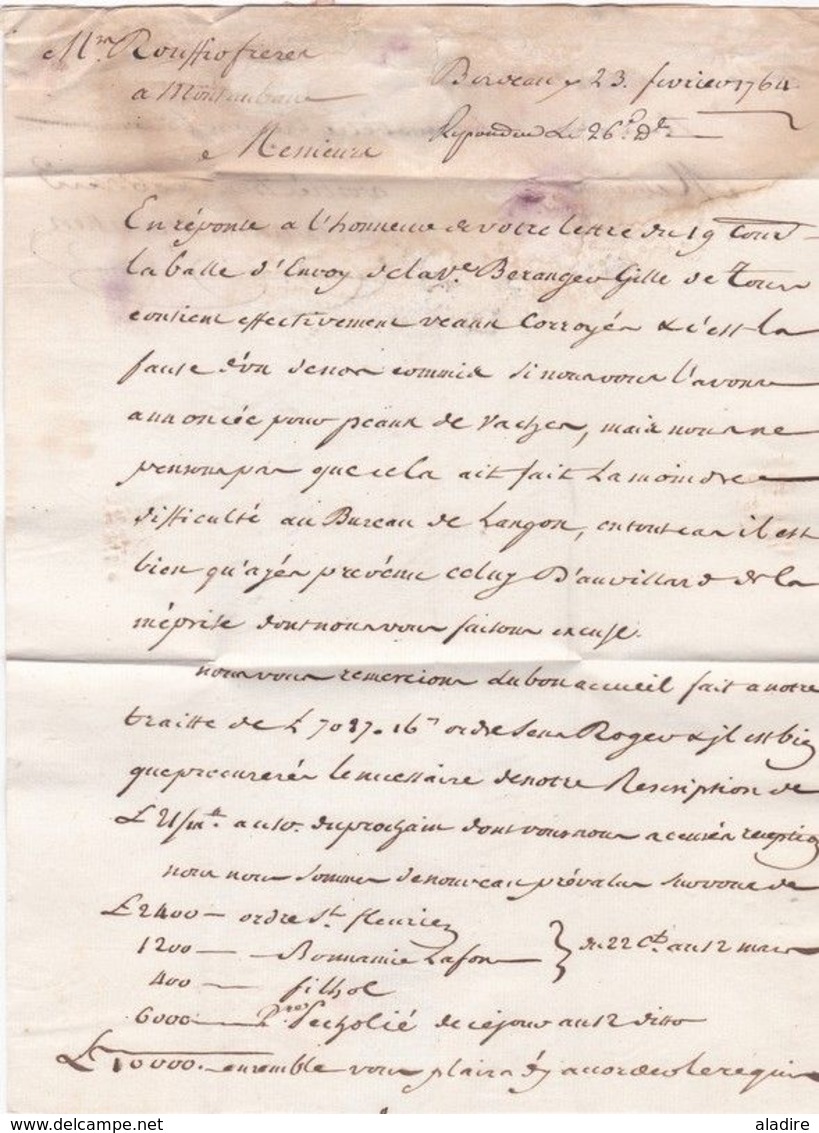 Mrs Rouffio freres
a Montauban
Bordeaux 23. fevrier 1764
Repondue Le 26e. Do
Messieurs
En réponse a l'honneur de votre lettre du 19 Cour
la balle d'Envoy de la Ve. Beranger Gille de Tours
contient effectivement veaux Corroyés & c'est la
faute d'un de nos commis si nous vous l'avons
annoncée pour peaux de Vaches, mais nous ne
pensons pas que cela ait fait La moindre
difficulté au Bureau de Langon, en tout cas il est
bien qu'ayés prevénu celuy D'auvillard de la
méprise dont nous vous faisons excuse.
nous vous remercions du bon accueil fait a notre
traitte de £ 7087.16s ordre Roger & jl est bien
que procurerés le necessaire de notre Rescription de
£ au 10. du prochain dont vous nous accusés reception
nous nous sommes de nouveau prévalus sur vous de
£ 2400 — ordre St. fleurien
1200 — Bonnamie Lafon } du 22 Ct. au 12 mars
400 — filhol
6000 — Pre. Pecholié de ce jour au 12 ditto
£ 10000. — ensemble vous plaira d'y accorder le requis
aladire